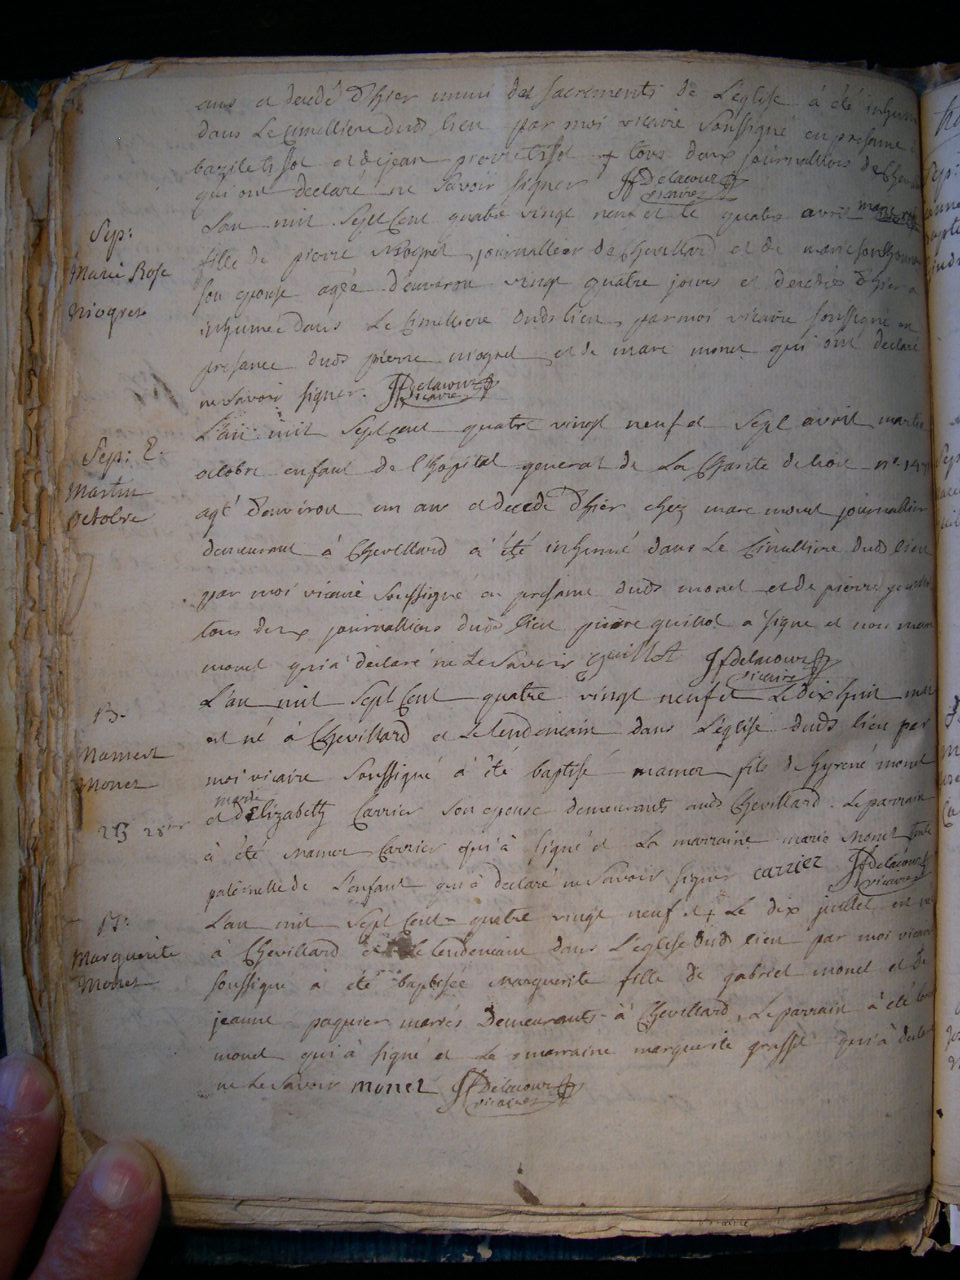 ans et decedé d'hier muni des sacrements de L'eglise à été inhumé
dans Le Cimettiere dud lien par moi vicaire Soussigné en presance
bazile tissot et de jean pierre tissot tous deux journalliers de Chevillard
qui ont declaré ne savoir signer Jf Delacour
vicaire
Sep:
Marie Rose
niogret
L'an mil Sept Cent quatre vingt neuf et le quatre avril marie rose
fille de pierre niogret journallier de Chevillard et de marie
son epouse agée d'environ vingt quatre jours et decedée d'hier a
inhumée dans Le Cimettiere dud lieu par moi vicaire soussigné en
presance dud pierre niogret et de marc monet qui ont declaré
ne savoir signer. Jf delacour
vicaire
Sep: E.
Martin
Octobre
L'an mil Sept Cent quatre vingt neuf et Sept avril martin
octobre enfant de l'hopital general de La Charite de lion no
agé d'environ un an et decedé d'hier chez marc monet journallier
demeurant à Chevillard à été inhumé dans Le Cimettiere dud lieu
par moi vicaire soussigné en presance dud monet et de pierre guillot
tous deux journalliers dud lieu pierre guillot a signé et non marc
monet qui a déclaré ne Le Savoir guillot Jf delacour
vicaire
B.
Namert
Monet
L'an mil Sept Cent quatre vingt neuf et Le dix huit mai
est né à Chevillard et Le lendemain dans L'église dud lieu par
moi vicaire Soussigné à été baptisé mamert fils de hyrené monet
et d'Elizabeth Carrier son epouse demeurants aud Chevillard. Le parrain
marie
à été mamert Carrier qui à signé et La marraine marie Monet tante
paternelle de L'enfant qui à declaré ne savoir signer carrier Jf Delacour
vicaire
B:
Marguerite
Monet
L'an mil Sept Cent quatre vingt neuf et Le dix juillet est né
à Chevillard et Le lendemain dans L'eglise dud lieu par moi vicaire
soussigné à été baptisée marguerite fille de gabriel monet et de
jeanne paquier mariés Demeurants à Chevillard, Le parrain à été
monet qui à signé et La marraine marguerite grosset qui à declaré
ne Le Savoir monet Jf Delacour
vicaire